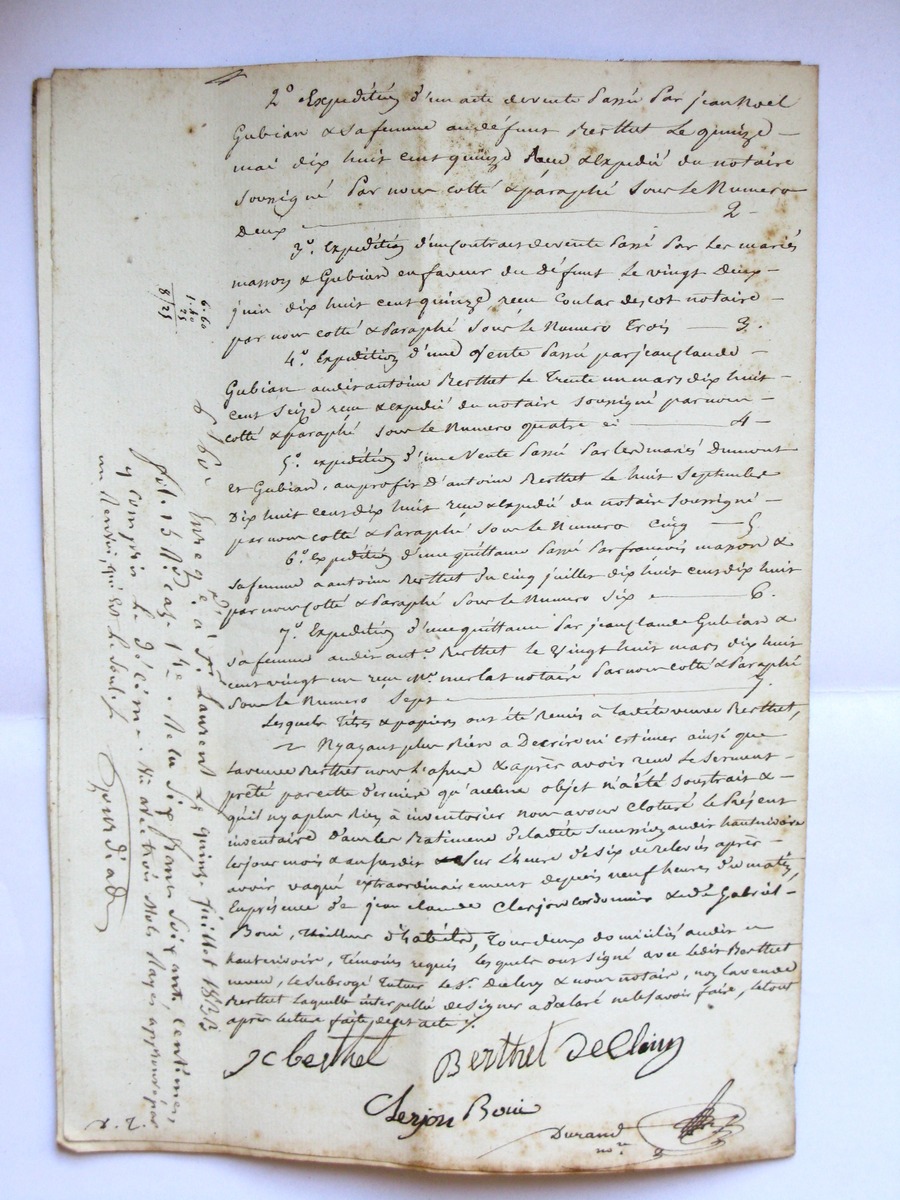 2° Expédition d'un acte de vente passé par jean Noel
Gubian & sa femme audéfunt Berthet le quinze —
mai dix huit cent quinze Reçu & expedié du notaire
soussigné par nous cotté & paraphé sous le Numero
deux — 2 —
3° Expédition d'un contrat de vente passé par les mariés
masson & Gubian en faveur du défunt le vingt deux —
juin dix huit cent quinze, reçu notaire —
par nous cotté & paraphé sous le Numero Trois — 3.
4° Expédition d'une vente passé par jean claude —
Gubian audit antoine Berthet le Trente un mars dix huit
cent seize reçu & expedié du notaire soussigné par nous —
cotté & paraphé sous le Numero quatre ci — 4 —
5° expédition d'une vente passé par les mariés Dumont
et Gubian, au profit d'antoine Berthet le huit Septembre
Dix huit cent dix huit reçu & expedié du notaire soussigné —
par nous cotté & paraphé sous le Numero Cinq — 5
6° Expédition d'une quittance passé par francois masson &
sa femme a antoine Berthet du cinq juillet dix huit cent dix huit
par nous cotté & paraphé sous le Numero six — 6.
7° Expédition d'une quittance par jean claude Gubian &
sa femme audit ant.e Berthet le vingt huit mars dix huit
cent vingt un reçu Me. merlat notaire par nous cotté & paraphé
sous le Numero Sept — 7.
Lesquels titres & papiers ont été remis à ladite veuve Berthet,
N'yayant plus Rien a Décrire ni estimer ainsi que
la veuve Berthet nous l'a assuré & après avoir reçu le serment
prêté par cette dernière qu'aucun objet n'a été soustrait & —
qu'il n'y a plus Rien à inventorier nous avons cloturé le Présent
inventaire dans les Batiments de ladite succession audit hauterivoire
les jour mois & an susdit & sur l'heure de six de relevée après —
avoir vaqué extraordinairement depuis neuf heures du matin,
En présence de jean claude Clerjon cordonnier & de Gabriel —
Boui, Tailleur d'habits, tous deux domiciliés audit
hauterivoire, témoins requis lesquels ont signé avec ledit Berthet
neveu, le subrogé Tuteur le Sr. & nous notaire, non la veuve
Berthet laquelle interpellé de signer a déclaré ne le savoir faire, le tout
après lecture faite, dont acte ./.
jc berthet Berthet
Clerjon Boui
Durand
nore
6.60
1.40
25
8/25
6 f 60 c Enregé à St Laurent le quinze juillet 1833
fol. 15 Rce. case 1re. Reçu six francs soixante centimes,
y compris le décime.
r. 2.